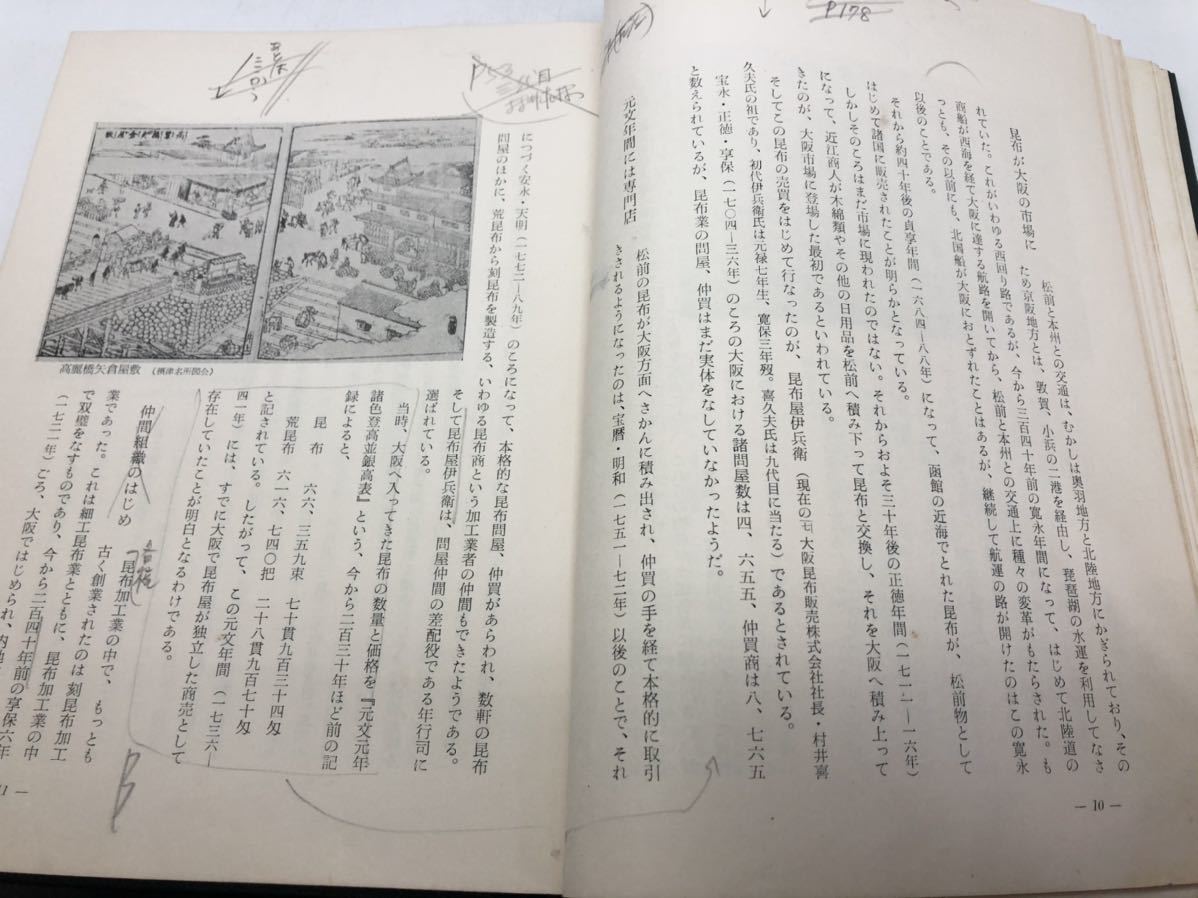 P178
昆布が大阪の市場に　松前と本州との交通は、むかしは奥羽地方と北陸地方にかぎられており、その
ため京阪地方とは、敦賀、小浜の二港を経由し、琵琶湖の水運を利用してなさ
れていた。これがいわゆる西回り路であるが、今から三百四十年前の寛永年間になって、はじめて北陸道の
商船が西海を経て大阪に達する航路を開いてから、松前と本州との交通上に種々の変革がもたらされた。も
っとも、その以前にも、北国船が大阪におとずれたことはあるが、継続して航運の路が開けたのはこの寛永
以後のことである。
それから約四十年後の貞享年間（一六八四—八八年）になって、函館の近海でとれた昆布が、松前物として
はじめて諸国に販売されたことが明らかとなっている。
しかしそのころはまだ市場に現われたのではない。それからおよそ三十年後の正徳年間（一七一一—一六年）
になって、近江商人が木綿類やその他の日用品を松前へ積み下って昆布と交換し、それを大阪へ積み上って
きたのが、大阪市場に登場した最初であるといわれている。
そしてこの昆布の売買をはじめて行なったのが、昆布屋伊兵衛（現在の大阪昆布販売株式会社社長・村井喜
久夫氏の祖であり、初代伊兵衛氏は元禄七年生、寛保三年歿。喜久夫氏は九代目に当たる）であるとされている。
宝永・正徳・享保（一七〇四—三六年）のころの大阪における諸問屋数は四、六五五、仲買商は八、七六五
と数えられているが、昆布業の問屋、仲買はまだ実体をなしていなかったようだ。
元文年間には専門店　松前の昆布が大阪方面へさかんに積み出され、仲買の手を経て本格的に取引
きされるようになったのは、宝暦・明和（一七五一—七二年）以後のことで、それ
— 10 —
につづく安永・天明（一七七二—八九年）のころになって、本格的な昆布問屋、仲買があらわれ、数軒の昆布
問屋のほかに、荒昆布から刻昆布を製造する、いわゆる昆布商という加工業者の仲間もできたようである。
そして昆布屋伊兵衛は、問屋仲間の差配役である年行司に
選ばれている。
当時、大阪へ入ってきた昆布の数量と価格を『元文元年
諸色登高並銀高表』という、今から二百三十年ほど前の記
録によると、
昆布　六六、三五九束　七十貫九百三十四匁
荒昆布　六一六、七四〇把　二十八貫九百七十匁
と記されている。したがって、この元文年間（一七三六—
四一年）には、すでに大阪で昆布屋が独立した商売として
存在していたことが明白となるわけである。
仲間組織のはじめ　古く創業されたのは刻昆布加工
昆布加工業の中で、もっとも
業であった。これは細工昆布業とともに、昆布加工業の中
で双璧をなすものであり、今から二百四十年前の享保六年
（一七二一年）ごろ、大阪ではじめられ、内地
高麗橋矢倉屋敷（摂津名所図会）
11 —